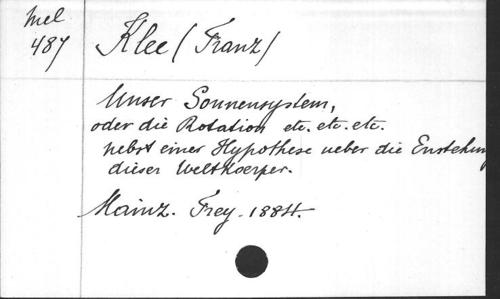 Mel
487
Klee (Franz)
Unser Sonnensystem,
oder die Rotation etc. etc. etc.
nebst einer Hypothese ueber die Enstehung
dieser Weltkoerper.
Mainz. Frey. 1884.